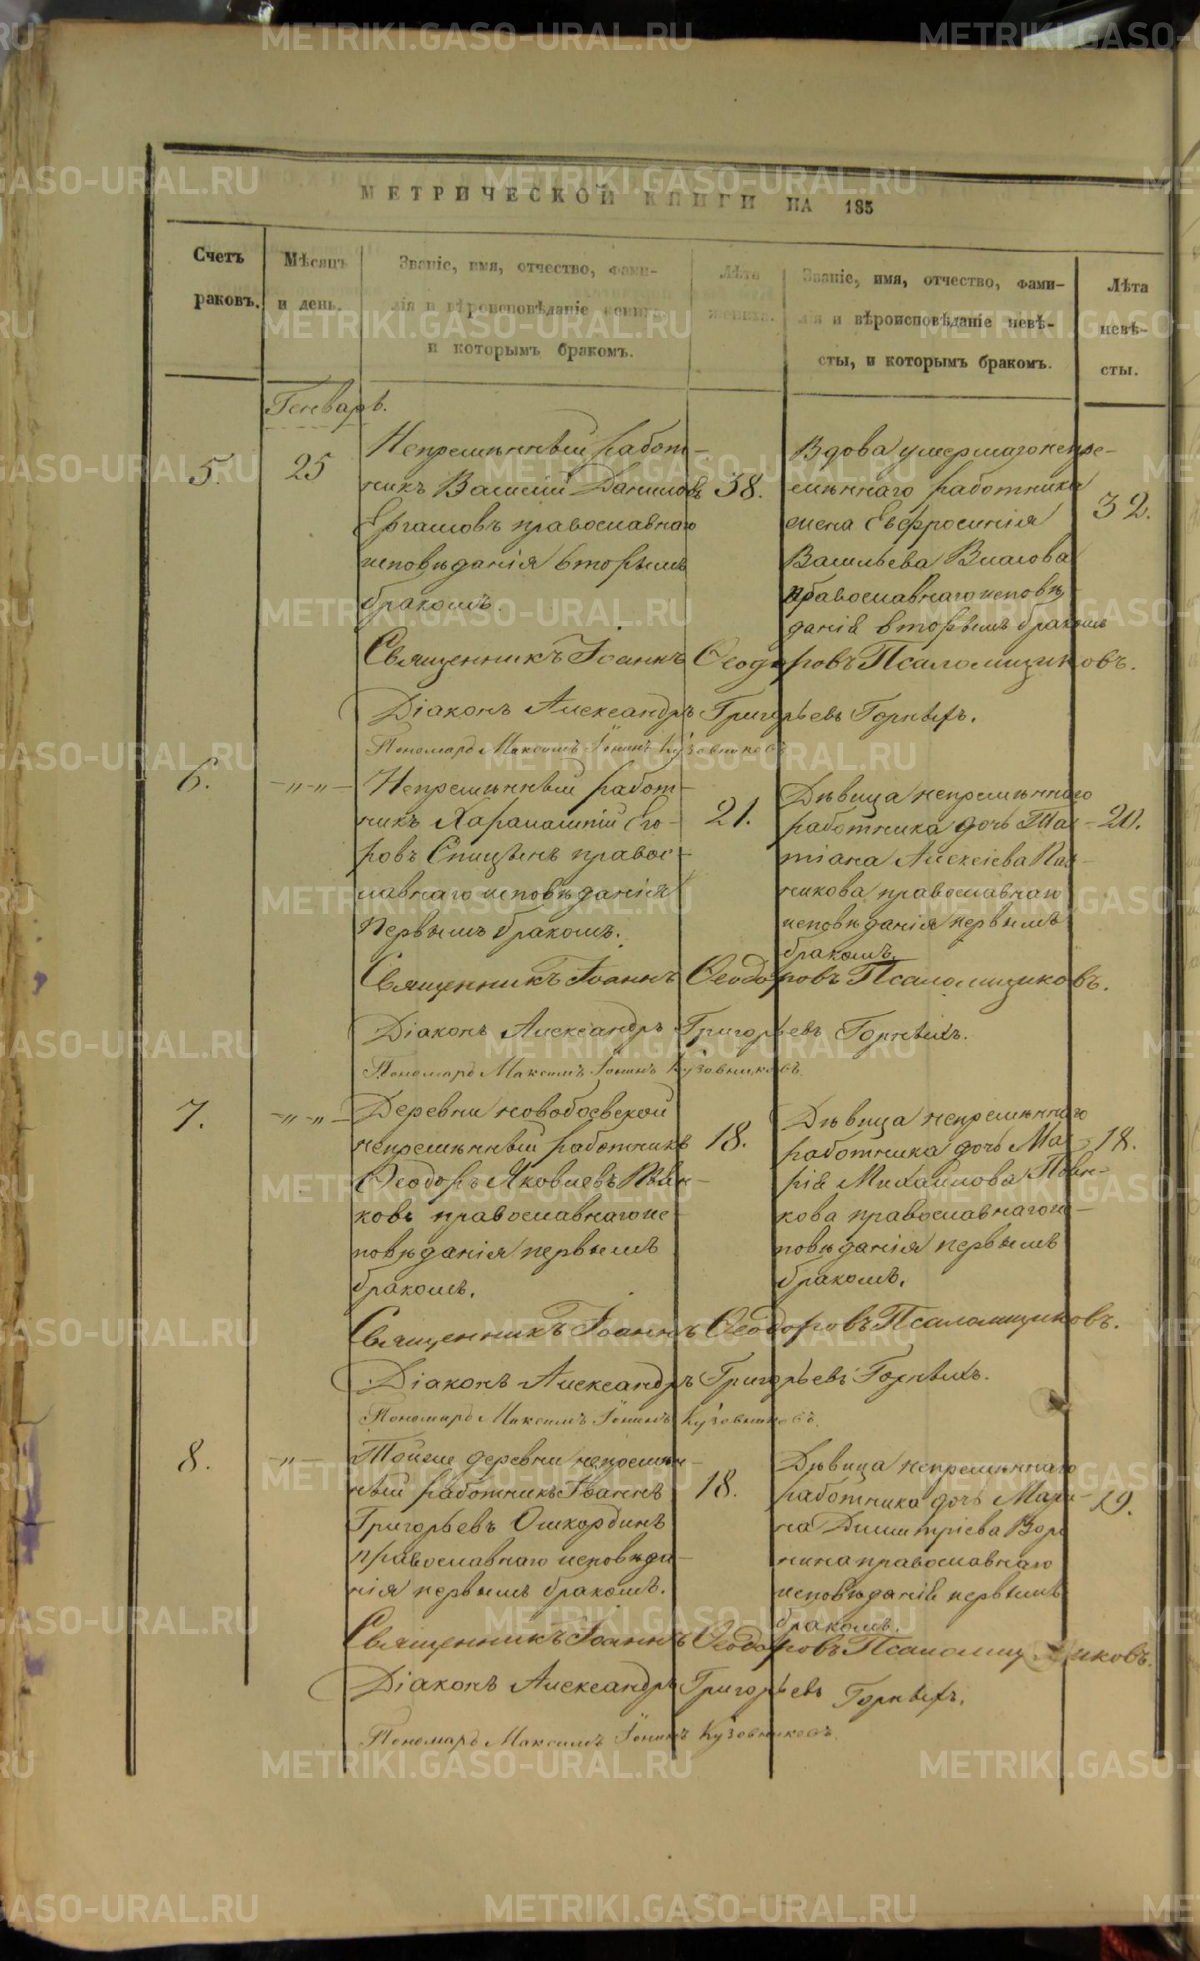 МЕТРИЧЕСКОЙ КНИГИ НА 185
Счетъ
раковъ.
Мѣсяцъ
и день.
Званіе, имя, отчество, фами-
лія и вѣроисповѣданіе жениха
и которымъ бракомъ.
Лѣта
жениха.
Званіе, имя, отчество, фами-
лія и вѣроисповѣданіе невѣ-
сты, и которымъ бракомъ.
Лѣта
невѣ-
сты.
Генварь.
5.
25
Непремѣнный работ-
никъ Василій Даниловъ
православнаго
исповѣданія вторымъ
бракомъ.
38.
Вдова умершаго непре-
мѣннаго работника
жена Евфросинія
Васильева Власова
православнаго исповѣ
данія вторымъ бракомъ
32.
Священникъ Іоаннъ Ѳеодоровъ Псаломщиковъ.
Діаконъ Александръ Григорьевъ Горныхъ.
Пономарь Максимъ Іонинъ Кузовниковъ
6.
-"-"-
Непремѣнный работ-
никъ Харалампій Его-
ровъ Спицынъ правос-
лавнаго исповѣданія
Первымъ бракомъ.
21.
Дѣвица непремѣннаго
работника дочь Тат-
тіана Алексіева
никова православнаго
исповѣданія первымъ
бракомъ.
20.
Священникъ Іоаннъ Ѳеодоровъ Псаломщиковъ.
Діаконъ Александръ Григорьевъ Горныхъ.
Пономарь Максимъ Іонинъ Кузовниковъ
7.
-"-"-
Деревни новобоевской
непремѣнный работникъ
Ѳеодоръ Яковлевъ Пьян-
ковъ православнаго ис-
повѣданія первымъ
бракомъ.
18.
Дѣвица непремѣннаго
работника дочь Ма-
рія Михайлова Пьян-
кова православнаго ис-
повѣданія первымъ
бракомъ.
18.
Священникъ Іоаннъ Ѳеодоровъ Псаломщиковъ.
Діаконъ Александръ Григорьевъ Горныхъ.
Пономарь Максимъ Іонинъ Кузовниковъ.
8.
-"-
Тойже деревни непремѣн-
ный работникъ Іоаннъ
Григорьевъ Ошкординъ
православнаго исповѣда-
нія первымъ бракомъ.
18.
Дѣвица непремѣннаго
работника дочь Мари-
на Димитріева Воро
нина православнаго
исповѣданія первымъ
бракомъ.
19.
Священникъ Іоаннъ Ѳеодоровъ Псаломщиковъ.
Діаконъ Александръ Григорьевъ Горныхъ.
Пономарь Максимъ Іонинъ Кузовниковъ.
METRIKI.GASO-URAL.RU